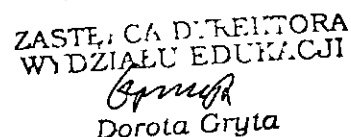 ZASTĘPCA DYREKTORA
WYDZIAŁU EDUKACJI
Dorota Gryta